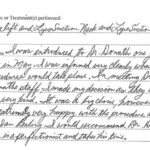 e or Treatment(s) performed:
y lift and LypoSuction Neck and LypoSuction
I was introduced to Dr. Donath one
in May, I was informed very clearly what
procedures would take place. In meeting Dr.
Donaths staff, I made my decision as They
very kind. It was a big choice, however
extremely very happy with the procedure
healing. I would recommend Dr. D
is a perfectionist and takes his time.